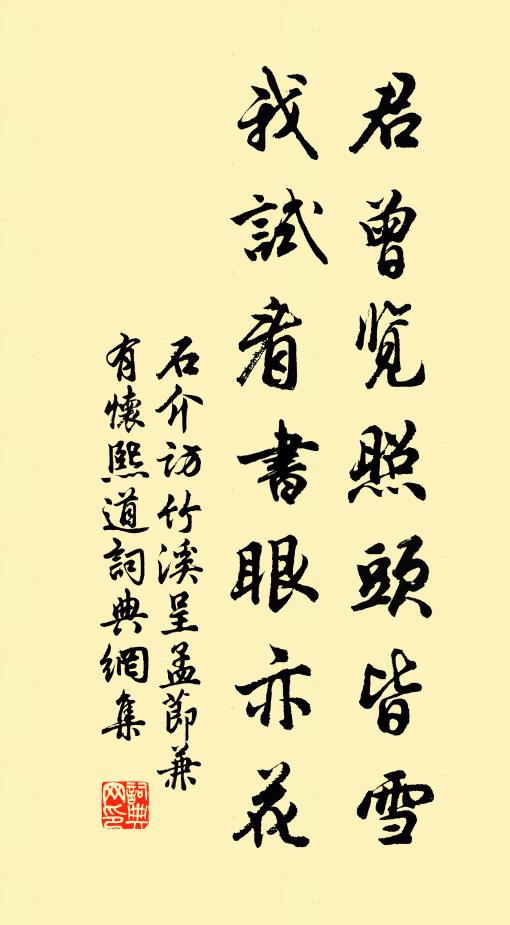 君曾览照頭皆雪
我試看書眼亦花
石介访竹溪呈孟節兼
有懷熙道詞典網集
詞典
网印